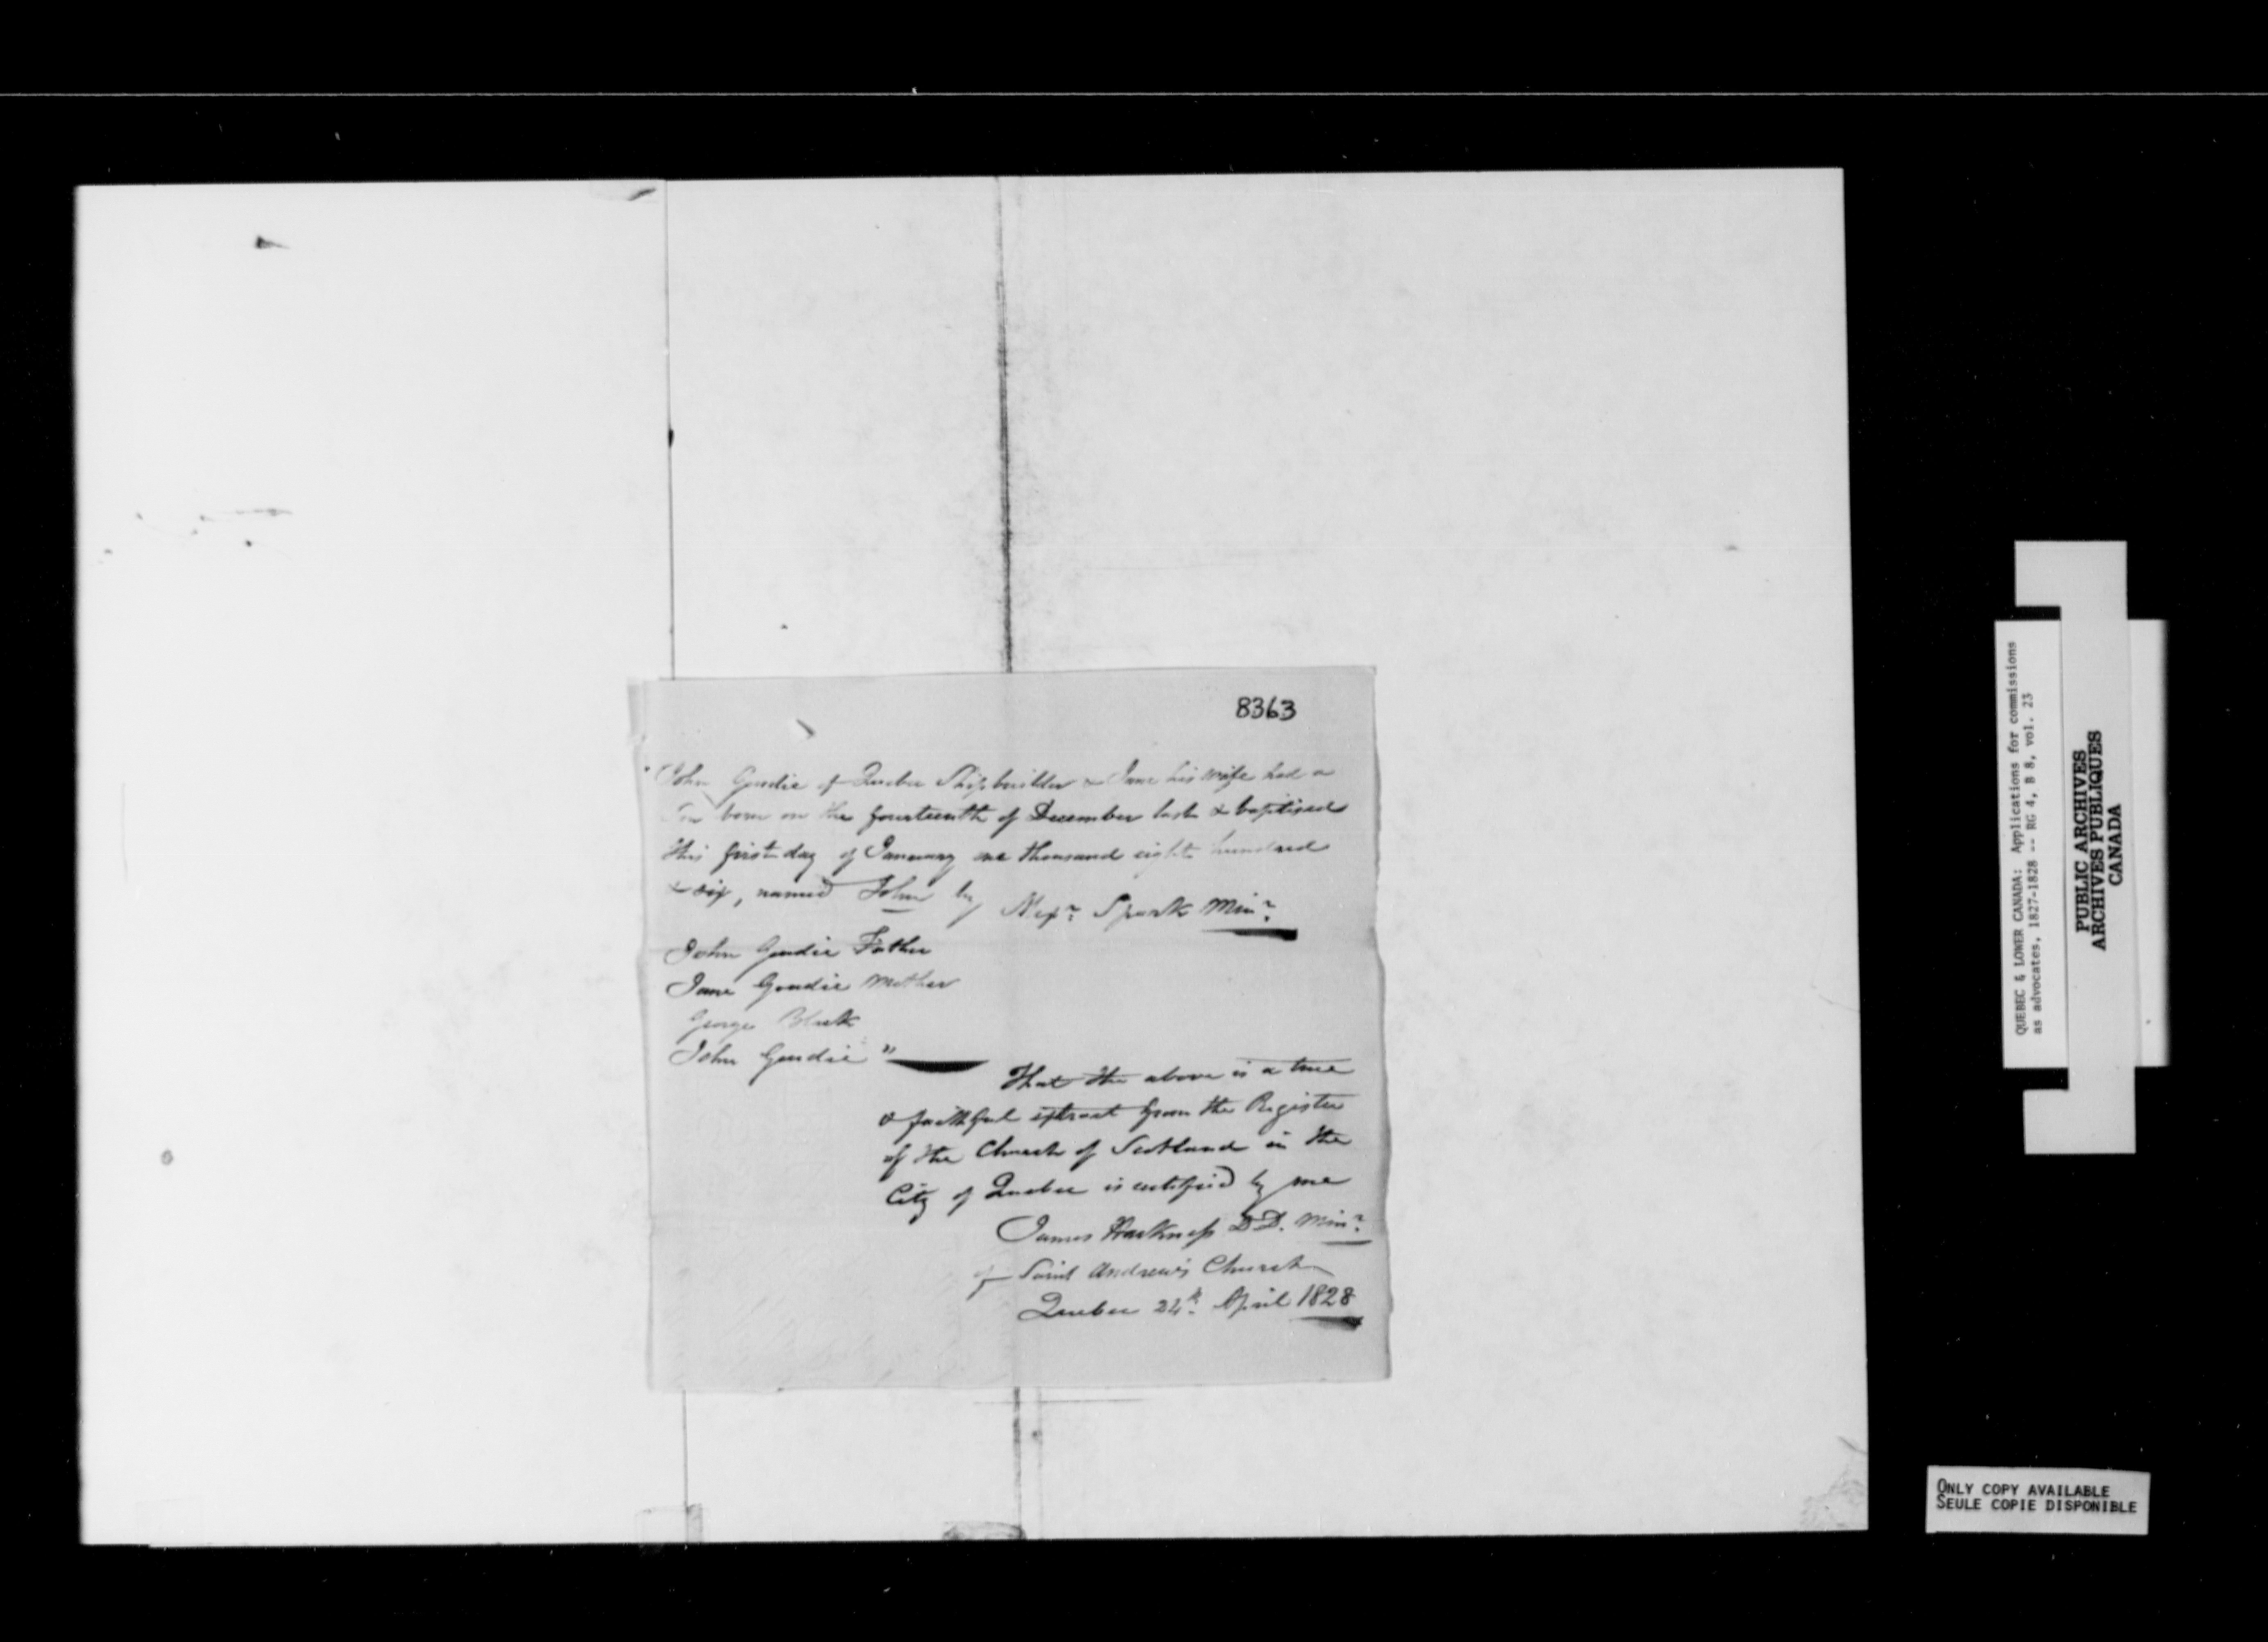 8363
"John Goudie of Quebec Shipbuilder & Jane his wife had a
Son born on the fourteenth of December last & baptised
this first day of January one thousand eight hundred
& six, named John by Alexr. Spark Minr.
John Goudie Father
Jane Goudie Mother
George Black
John Goudie "
That the above is a true
& faithful extract from the Register
of the Church of Scotland in the
City of Quebec is certified by me
James Harkness D.D. Minr.
of Saint Andrew's Church
Quebec 24th. April 1828
QUEBEC & LOWER CANADA: Applications for commissions
as advocates, 1827-1828 -- RG 4, B 8, vol. 23
PUBLIC ARCHIVES
ARCHIVES PUBLIQUES
CANADA
ONLY COPY AVAILABLE
SEULE COPIE DISPONIBLE